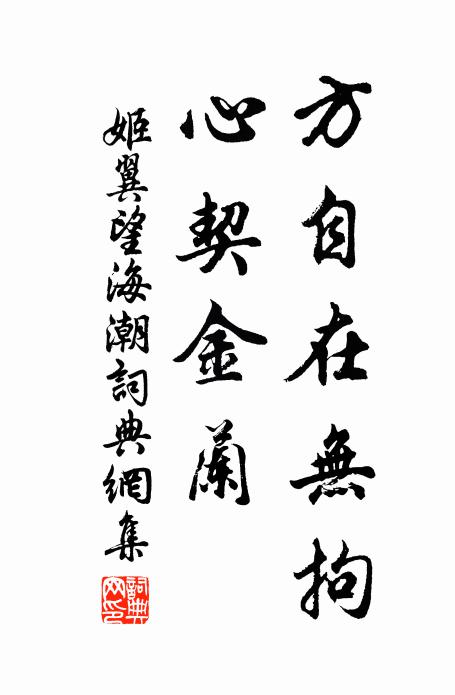 方自在無拘
心契金蘭
姬翼望海潮詞典網集
詞典
网印